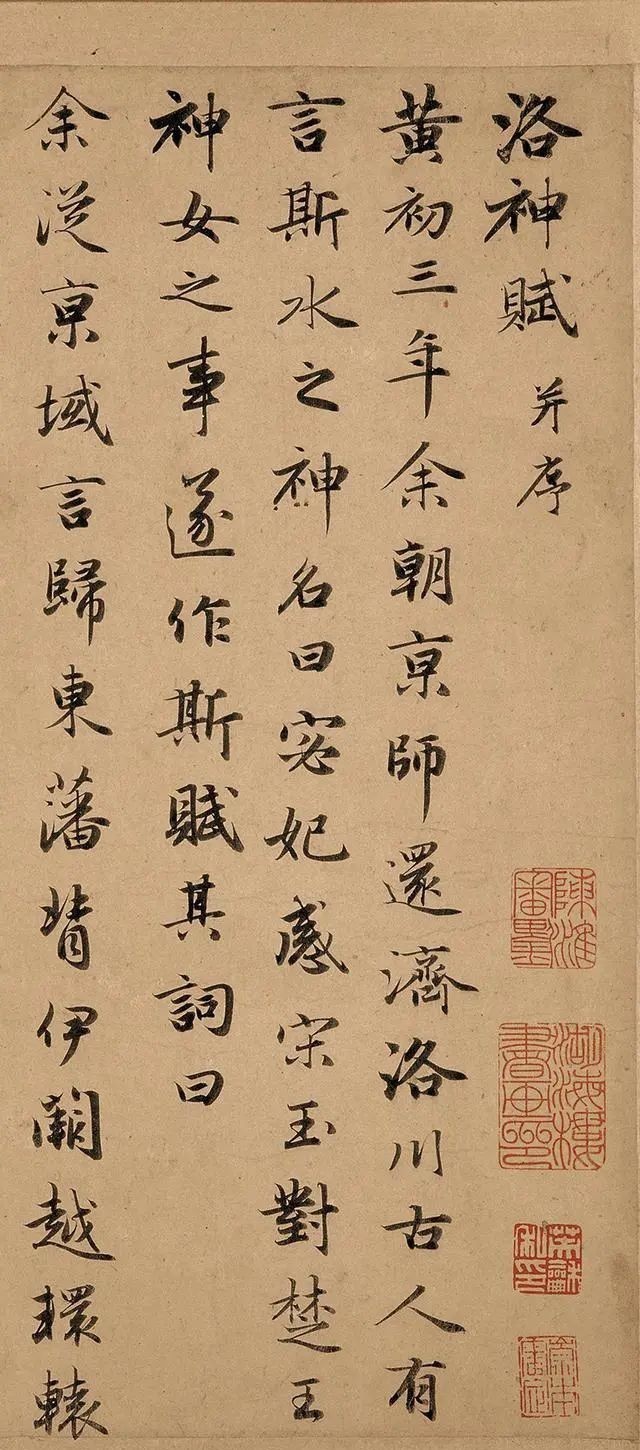 洛神賦 并序
黄初三年余朝亰師還濟洛川古人有
言斯水之神名曰宓妃感宋玉對楚王
神女之事遂作斯賦其詞曰
余従亰域言歸東藩背伊闕越轘轅